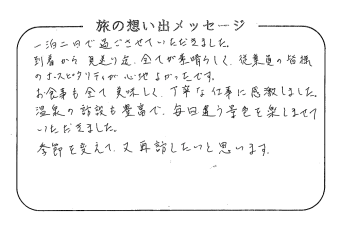 旅の想い出メッセージ
一泊二日で過ごさせていただきました。
到着から見送り迄、全てが素晴らしく、従業員の皆様
のホスピタリティが心地よかったです。
お食事も全て美味しく、丁寧な仕事に感激しました。
温泉の施設も豊富で、毎日違う景色を楽しませて
いただきました。
季節を変えて、又再訪したいと思います。